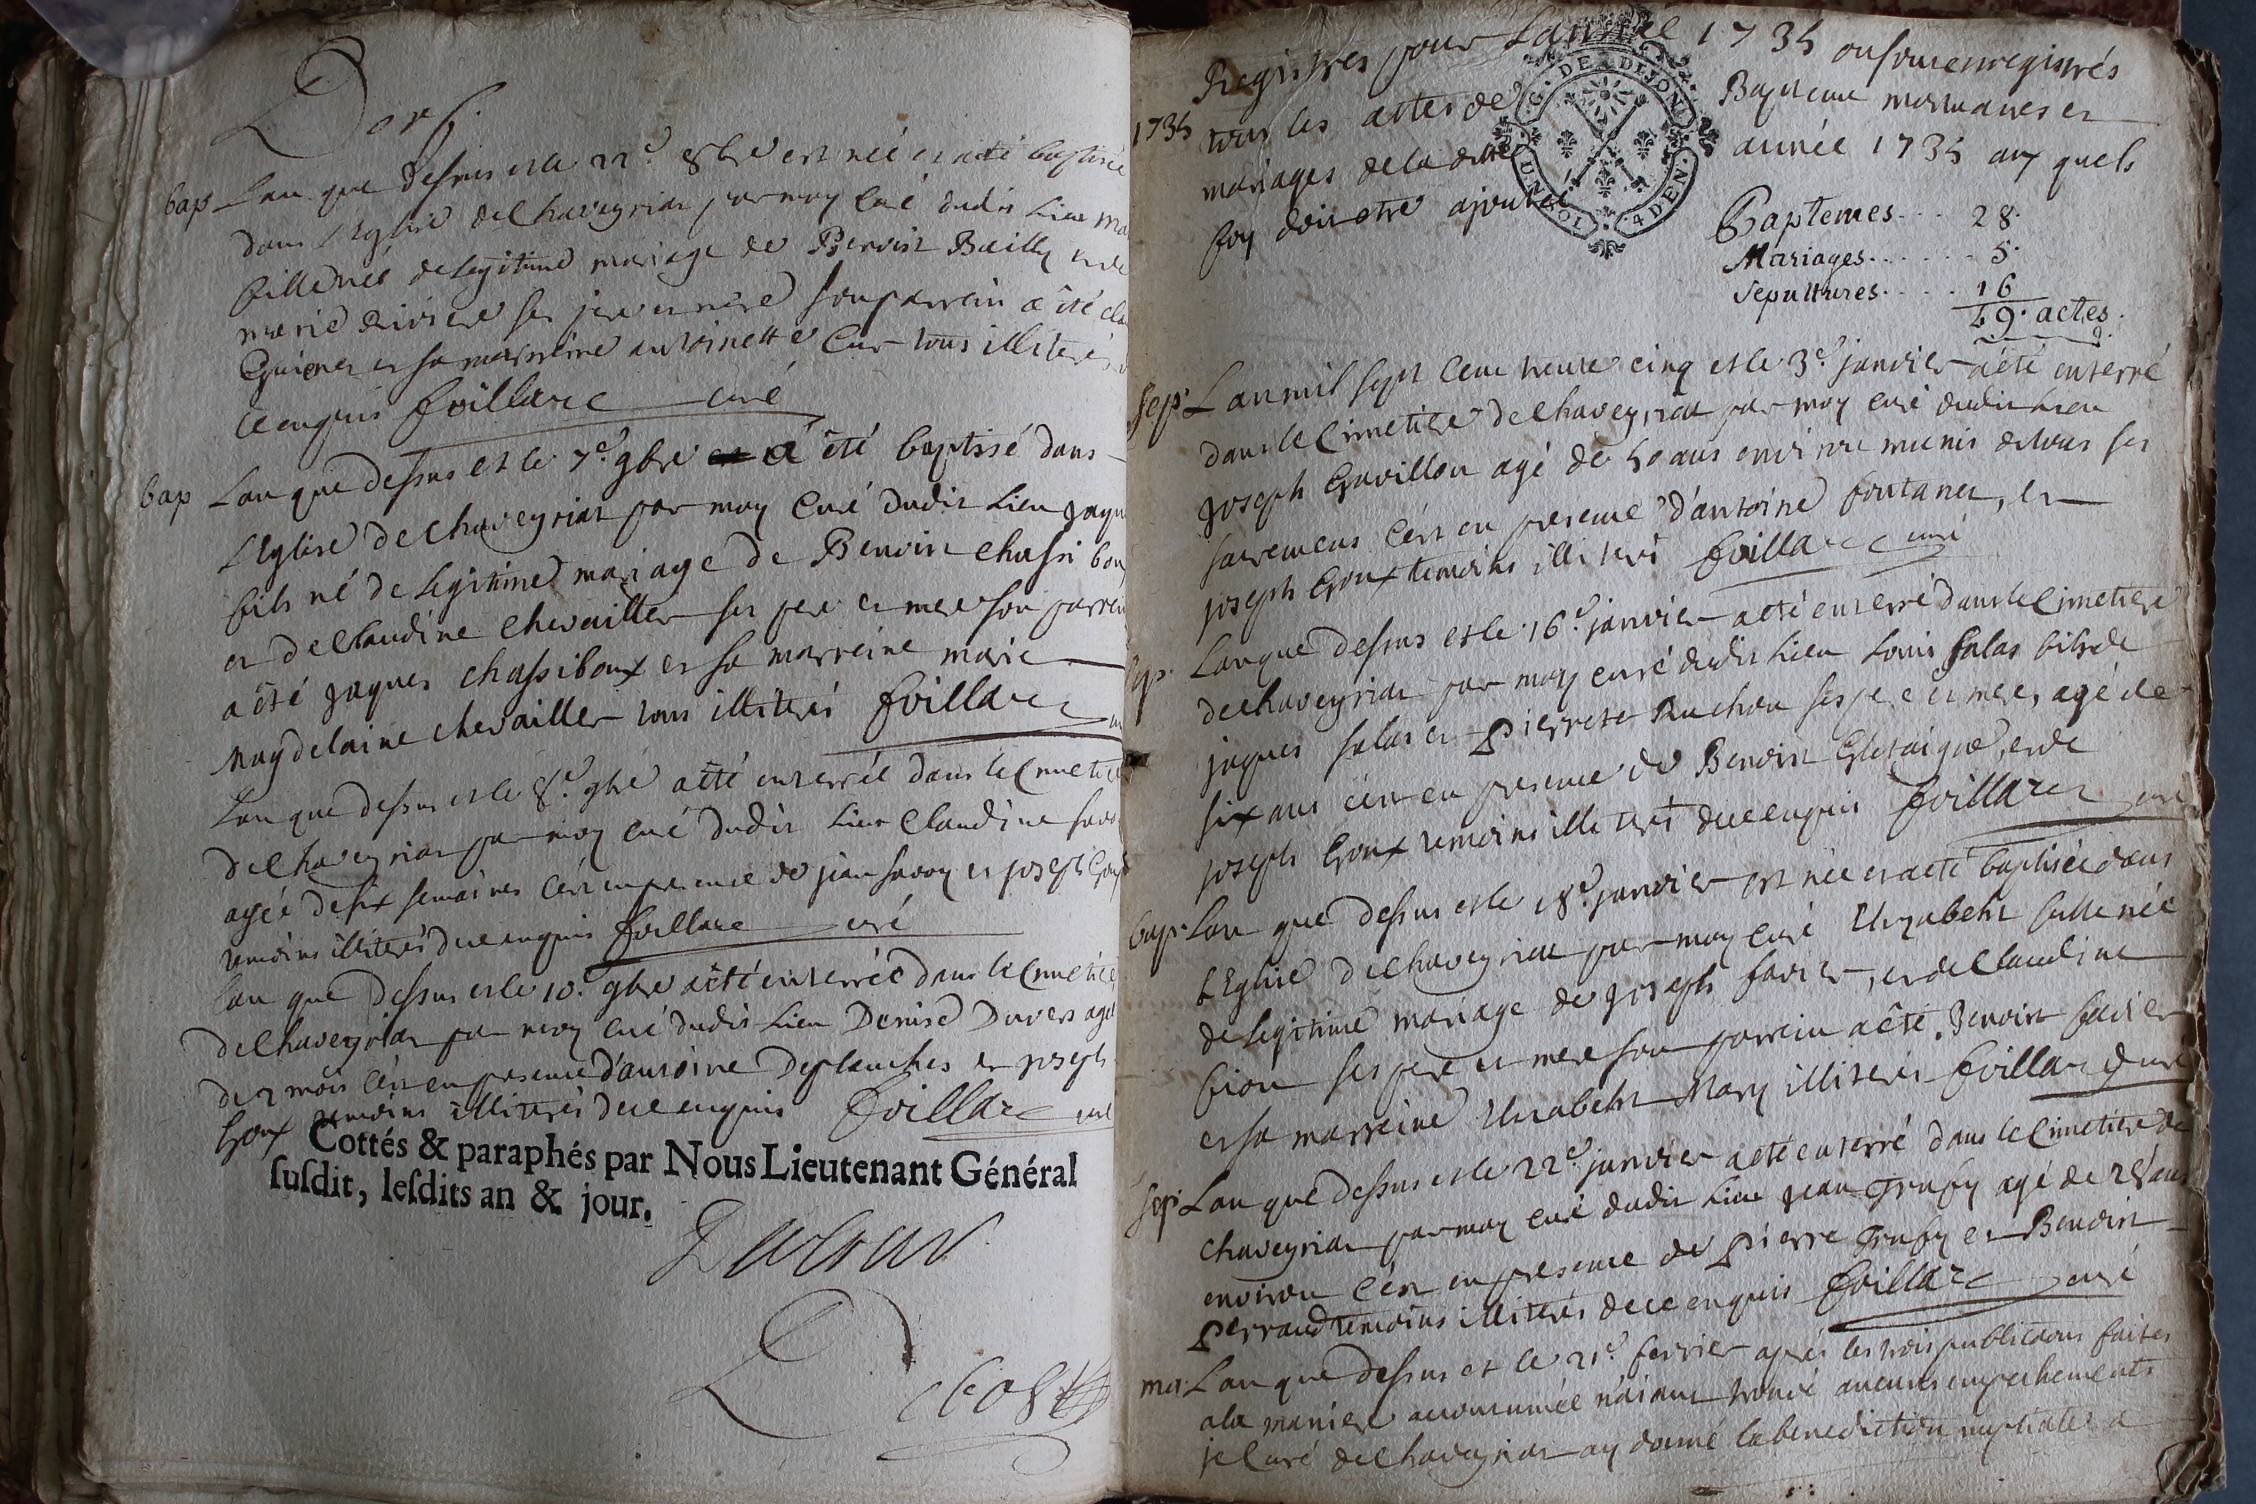 bap Lan que dessus et le 22e 8bre est née et a été baptisée
dans l'Eglise de Chaveyriat par moy curé dudit Lieu
fille née de Legitime mariage de Benoist Bailly et de
marie riviere ses pere et mere son parrein a été
et sa marreine antoinette tous illiterés
de ce enquis foillare curé
bap Lan que dessus et le 7e 9bre a été baptisé dans
L'Eglise de Chaveyriat par moy curé dudit Lieu
fils né de Legitime mariage de Benoist chassi bou
et de Claudine chevailler ses pere et mere son parrein
a été jaques chassiboux et sa marreine marie
magdelaine chevailler tous illiterés foillare
Lan que dessus et le 8e 9bre a été enterrée dans le Cimetiere
de Chaveyriat par moy curé dudit Lieu Claudine
agée de six semaines c'est en presence de jean savoy et joseph
temoins illiterés de ce enquis foillare curé
Lan que dessus et le 10e 9bre a été enterrée dans le Cimetiere
de Chaveyriat par moy curé dudit Lieu Denise Duvers agée
de 2 mois c'est en presence d'antoine Desplanches et joseph
Goux temoins illiterés de ce enquis foillare curé
Cottés & paraphés par Nous Lieutenant Général
susdit, lesdits an & jour.
Registres pour Lannée 1735 ou sont enregistrés
1735 tous les actes de Bapteme mortuaires et
mariages de la ditte année 1735 aux quels
foy doit etre ajouté
G. DE DIJON
UN SOL 4 DEN.
Baptemes 28.
Mariages 5.
Sepultures 16
49. actes.
sep. Lan mil sept cent trente cinq et le 3e janvier a été enterré
dans le Cimetiere de Chaveyriat par moy curé dudit Lieu
joseph Gavillon agé de 50 ans environ munis de tous ses
sacremens c'est en presence d'antoine fontanet, et
joseph Goux temoins illiterés foillare curé
sep. Lan que dessus et le 16e janvier a été enterré dans le Cimetiere
de chaveyriat par moy curé dudit Lieu Louis salas fils de
jaques salas et pierrete Ruchon ses pere et mere, agé de
six ans c'est en presence de Benoist et de
joseph Goux temoins illiterés de ce enquis foillare curé
bap. Lan que dessus et le 18e janvier est née et a été baptisée dans
L'Eglise de Chaveyriat par moy curé Elizabeht fille née
de Legitime mariage de joseph favier, et de Claudine
fion ses pere et mere son parrein a été Benoist favier
et sa marreine Elizabeht Mary illiterés foillare curé
sep. Lan que dessus et le 22e janvier a été enterré dans le Cimetiere de
Chaveyriat par moy curé dudit Lieu jean Grufy agé de 28 ans
environ c'est en presence de pierre Grufy et Benoist
perraud temoins illiterés de ce enquis foillare curé
ma. Lan que dessus et le 21e fevrier aprés les trois publications faites
a la maniere accoutumée n'aiant trouvé aucuns empechements
je Curé de Chaveyriat ay donné la benediction nuptiale a